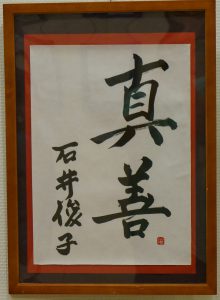 真善
石井俊子